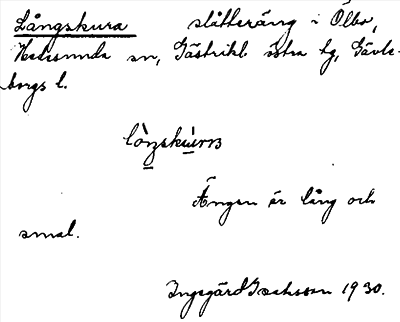 Långskura slåtteräng i Ölbo,
Hedesunda sn, Gästrikl. östra tg, Gävle-
borgs l.
Ängen är lång och
smal.
Ingegärd Isachsson 1930.